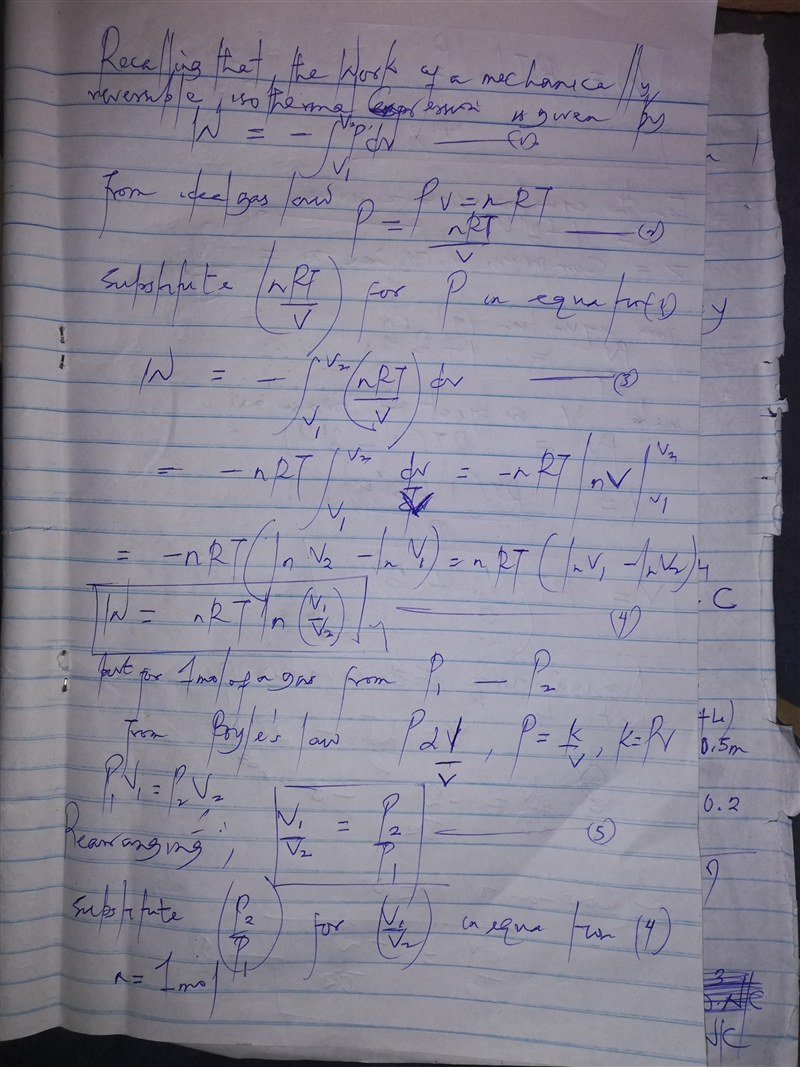 Recalling that, the work of a mechanically
reversible, isothermal is given by
W = - ∫_{V₁}^{V₂} P dv —— (1)
from ideal gas law PV = nRT
P = nRT/V —— (2)
Substitute (nRT/V) for P in equation (1)
W = - ∫_{V₁}^{V₂} (nRT/V) dv —— (3)
= - nRT ∫_{V₁}^{V₂} dv/V = -nRT |ln V|_{V₁}^{V₂}
= -nRT (ln V₂ - ln V₁) = nRT (ln V₁ - ln V₂)
W = nRT ln (V₁/V₂) —— (4)
but for 1mol of a gas from P₁ — P₂
from Boyle's law P α 1/V, P = k/V, k = PV
P₁V₁ = P₂V₂
Rearranging; V₁/V₂ = P₂/P₁ —— (5)
Substitute (P₂/P₁) for (V₁/V₂) in equation (4)
n = 1mol
y
C
0.5m
0.2